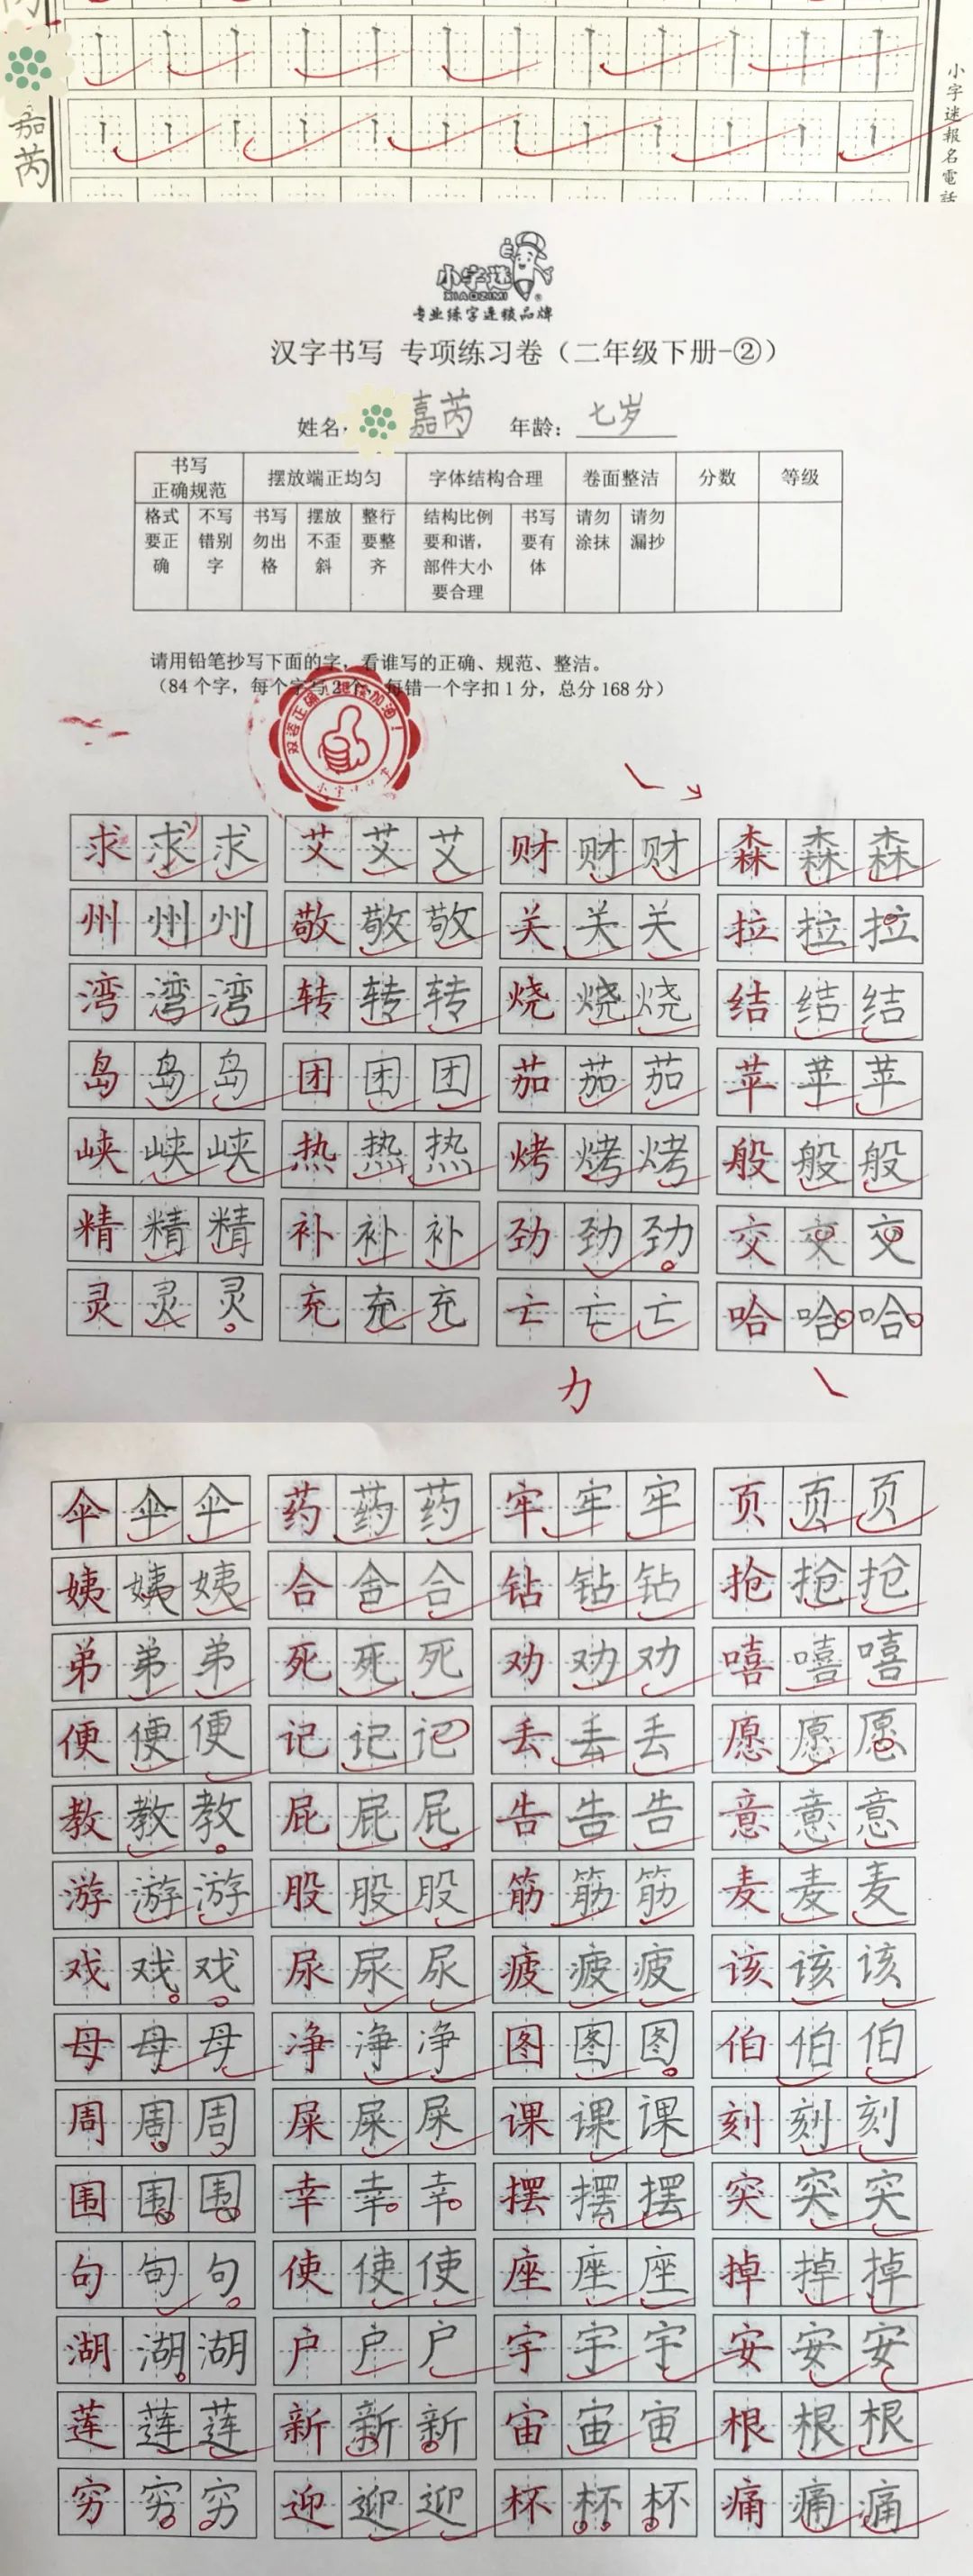 嘉芮
小字迷報名電話
小字迷
XIAOZIMI
专业练字连锁品牌
汉字书写 专项练习卷（二年级下册-②）
姓名: 嘉芮 年龄: 七岁
书写正确规范 摆放端正均匀 字体结构合理 卷面整洁 分数 等级
格式要正确 不写错别字 书写勿出格 摆放不歪斜 整行要整齐 结构比例要和谐，部件大小要合理 书写要有体 请勿涂抹 请勿漏抄
请用铅笔抄写下面的字，看谁写的正确、规范、整洁。
（84个字，每个字写2个，每错一个字扣1分，总分168分）
求求求 艾艾艾 财财财 森森森
州州州 敬敬敬 关关关 拉拉拉
湾湾湾 转转转 烧烧烧 结结结
岛岛岛 团团团 茄茄茄 苹苹苹
峡峡峡 热热热 烤烤烤 般般般
精精精 补补补 劲劲劲 交交交
灵灵灵 充充充 亡亡亡 哈哈哈
力
伞伞伞 药药药 牢牢牢 页页页
姨姨姨 合合合 钻钻钻 抢抢抢
弟弟弟 死死死 劝劝劝 嘻嘻嘻
便便便 记记记 丢丢丢 愿愿愿
教教教 屁屁屁 告告告 意意意
游游游 股股股 筋筋筋 麦麦麦
戏戏戏 尿尿尿 疲疲疲 该该该
母母母 净净净 图图图 伯伯伯
周周周 屎屎屎 课课课 刻刻刻
围围围 幸幸幸 摆摆摆 突突突
句句句 使使使 座座座 掉掉掉
湖湖湖 户户户 宇宇宇 安安安
莲莲莲 新新新 宙宙宙 根根根
穷穷穷 迎迎迎 杯杯杯 痛痛痛